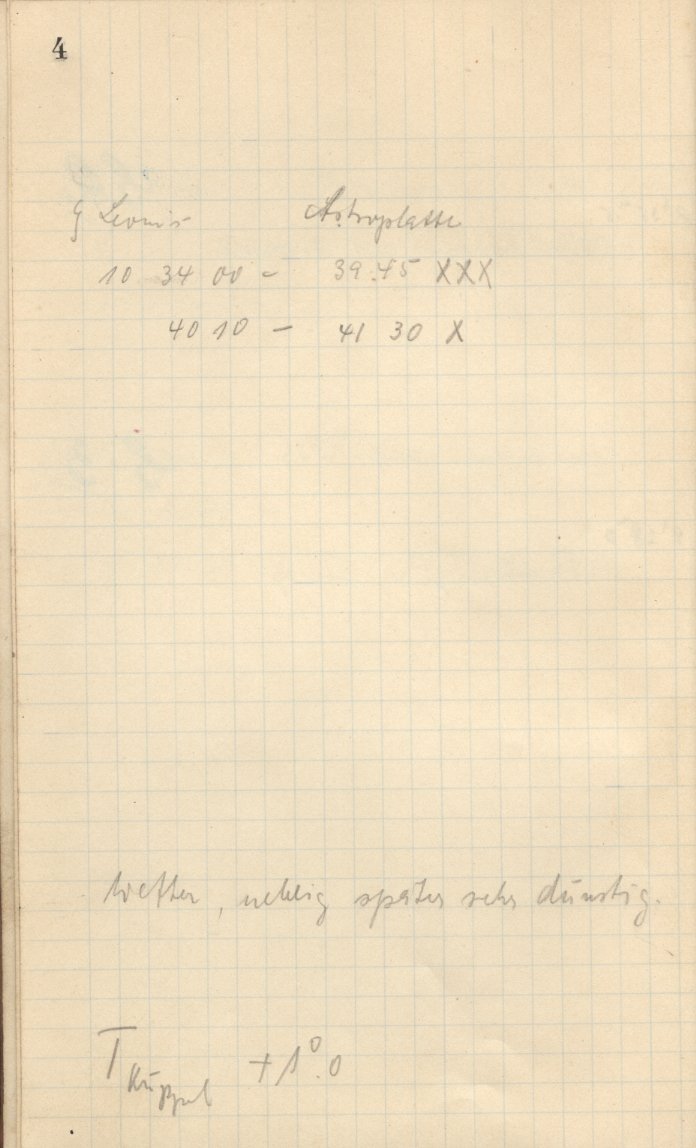 4
Leonis Astroplatte
10 34 00 – 39.45 XXX
40 10 – 41 30 X
Wetter, neblig später sehr dunstig.
T Kuppel +1°.0